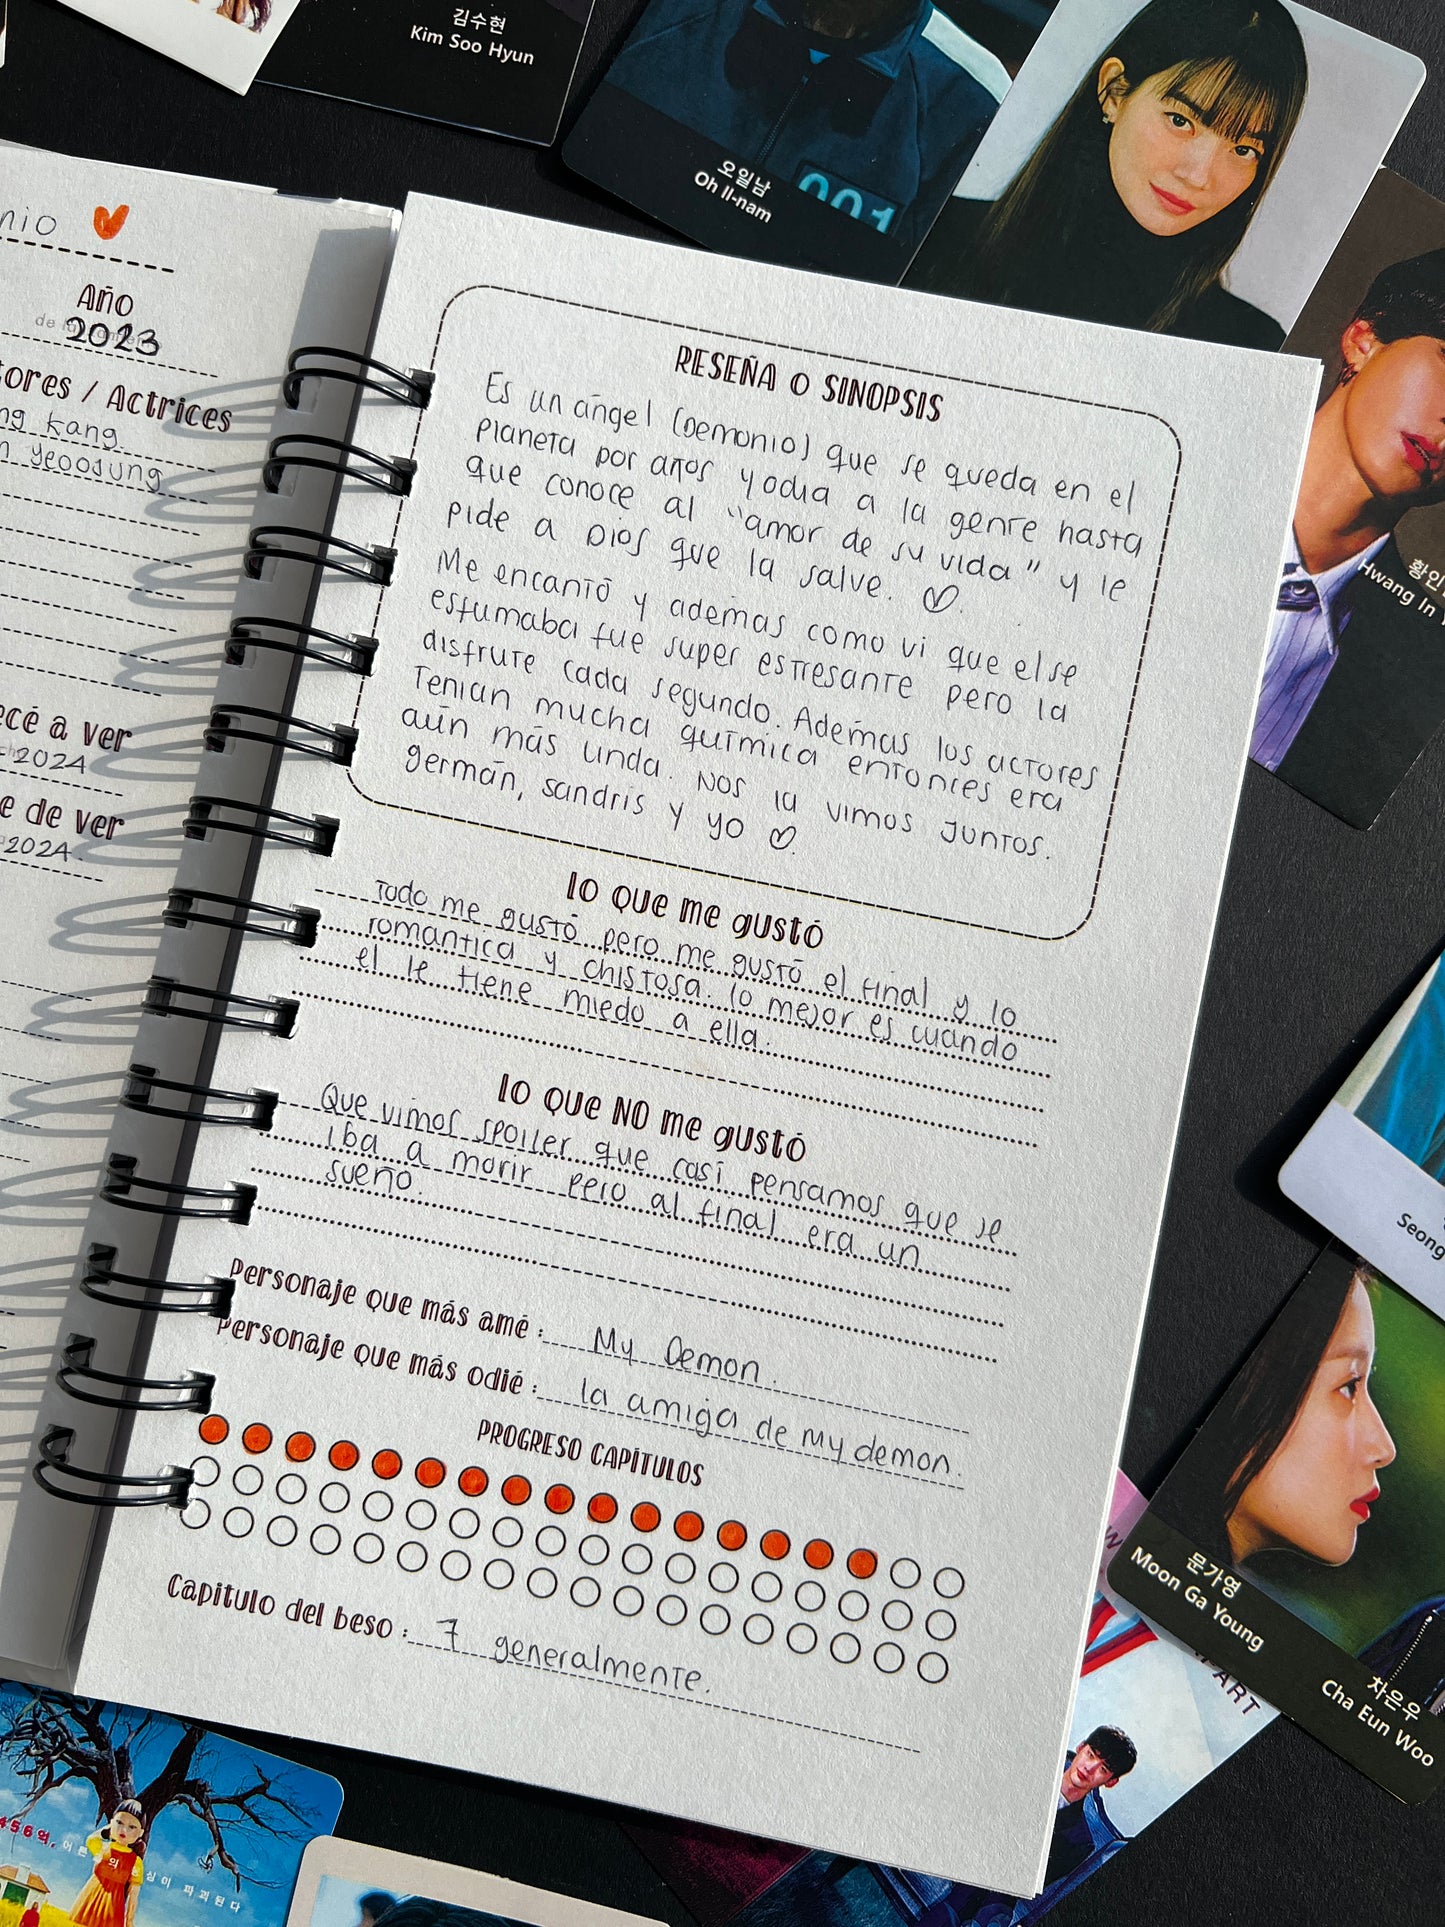 김수현
Kim Soo Hyun
오일남
Oh Il-nam
001
nio
Año
2023
tores / Actrices
ng kang.
n yeoosung
ecé a ver
2024
e de ver
2024.
RESEÑA O SINOPSIS
Es un ángel (Demonio) que se queda en el
planeta por años y odia a la gente hasta
que conoce al "amor de su vida" y le
pide a Dios que la salve.
Me encantó y además como vi que el se
esfumaba fue super estresante pero la
disfrute cada segundo. Además los actores
Tenian mucha química entonces era
aún más linda. Nos la vimos juntos.
germán, sandris y yo
LO QUE ME GUSTÓ
Todo me gustó pero me gustó el final y lo
romantica y chistosa. lo mejor es cuando
el le tiene miedo a ella.
LO QUE NO ME GUSTÓ
Que vimos spoiler que casi pensamos que se
iba a morir pero al final era un
sueño.
Personaje que más amé : My Demon.
Personaje que más odié : la amiga de my demon.
PROGRESO CAPÍTULOS
Capitulo del beso : 7 generalmente.
황인
Hwang In
Seong
문가영
Moon Ga Young
차은우
Cha Eun Woo
ART
456억,
파괴된다